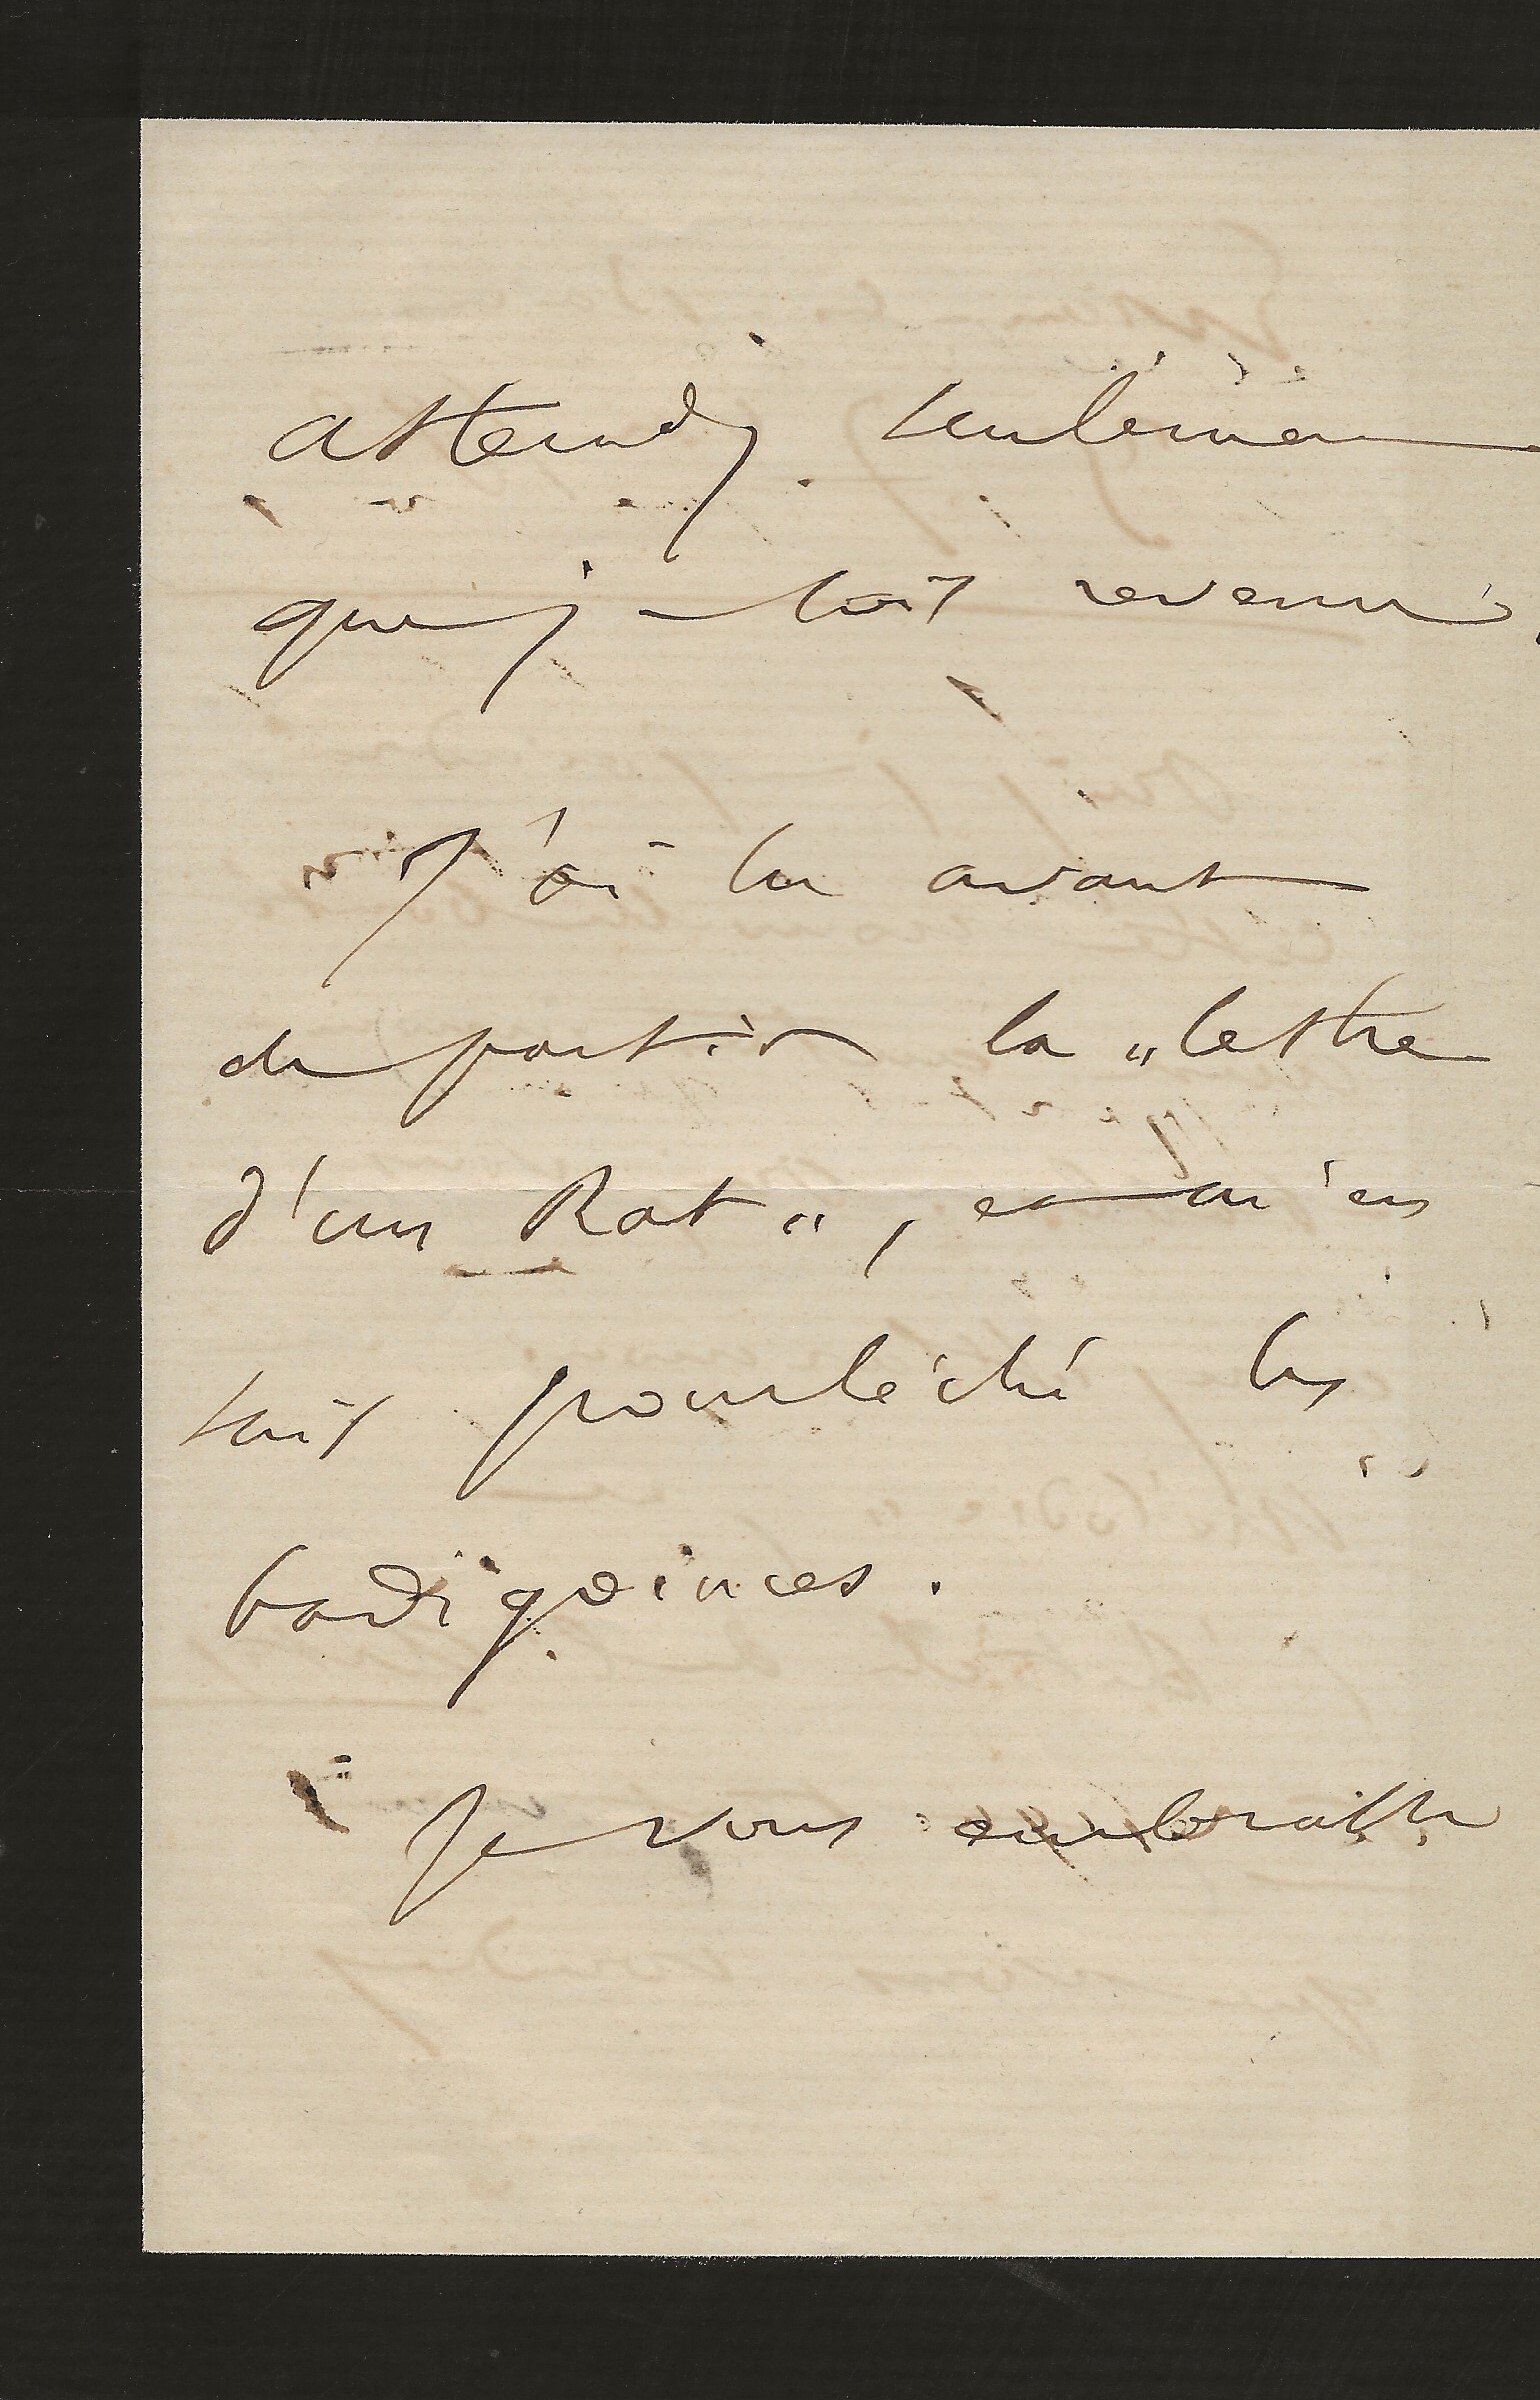 attendez seulement
que je sois revenu.
J'ai lu avant
de partir la "lettre
d'un Rat", et m'en
suis pourléché les
badigoinces.
Je vous embrasse